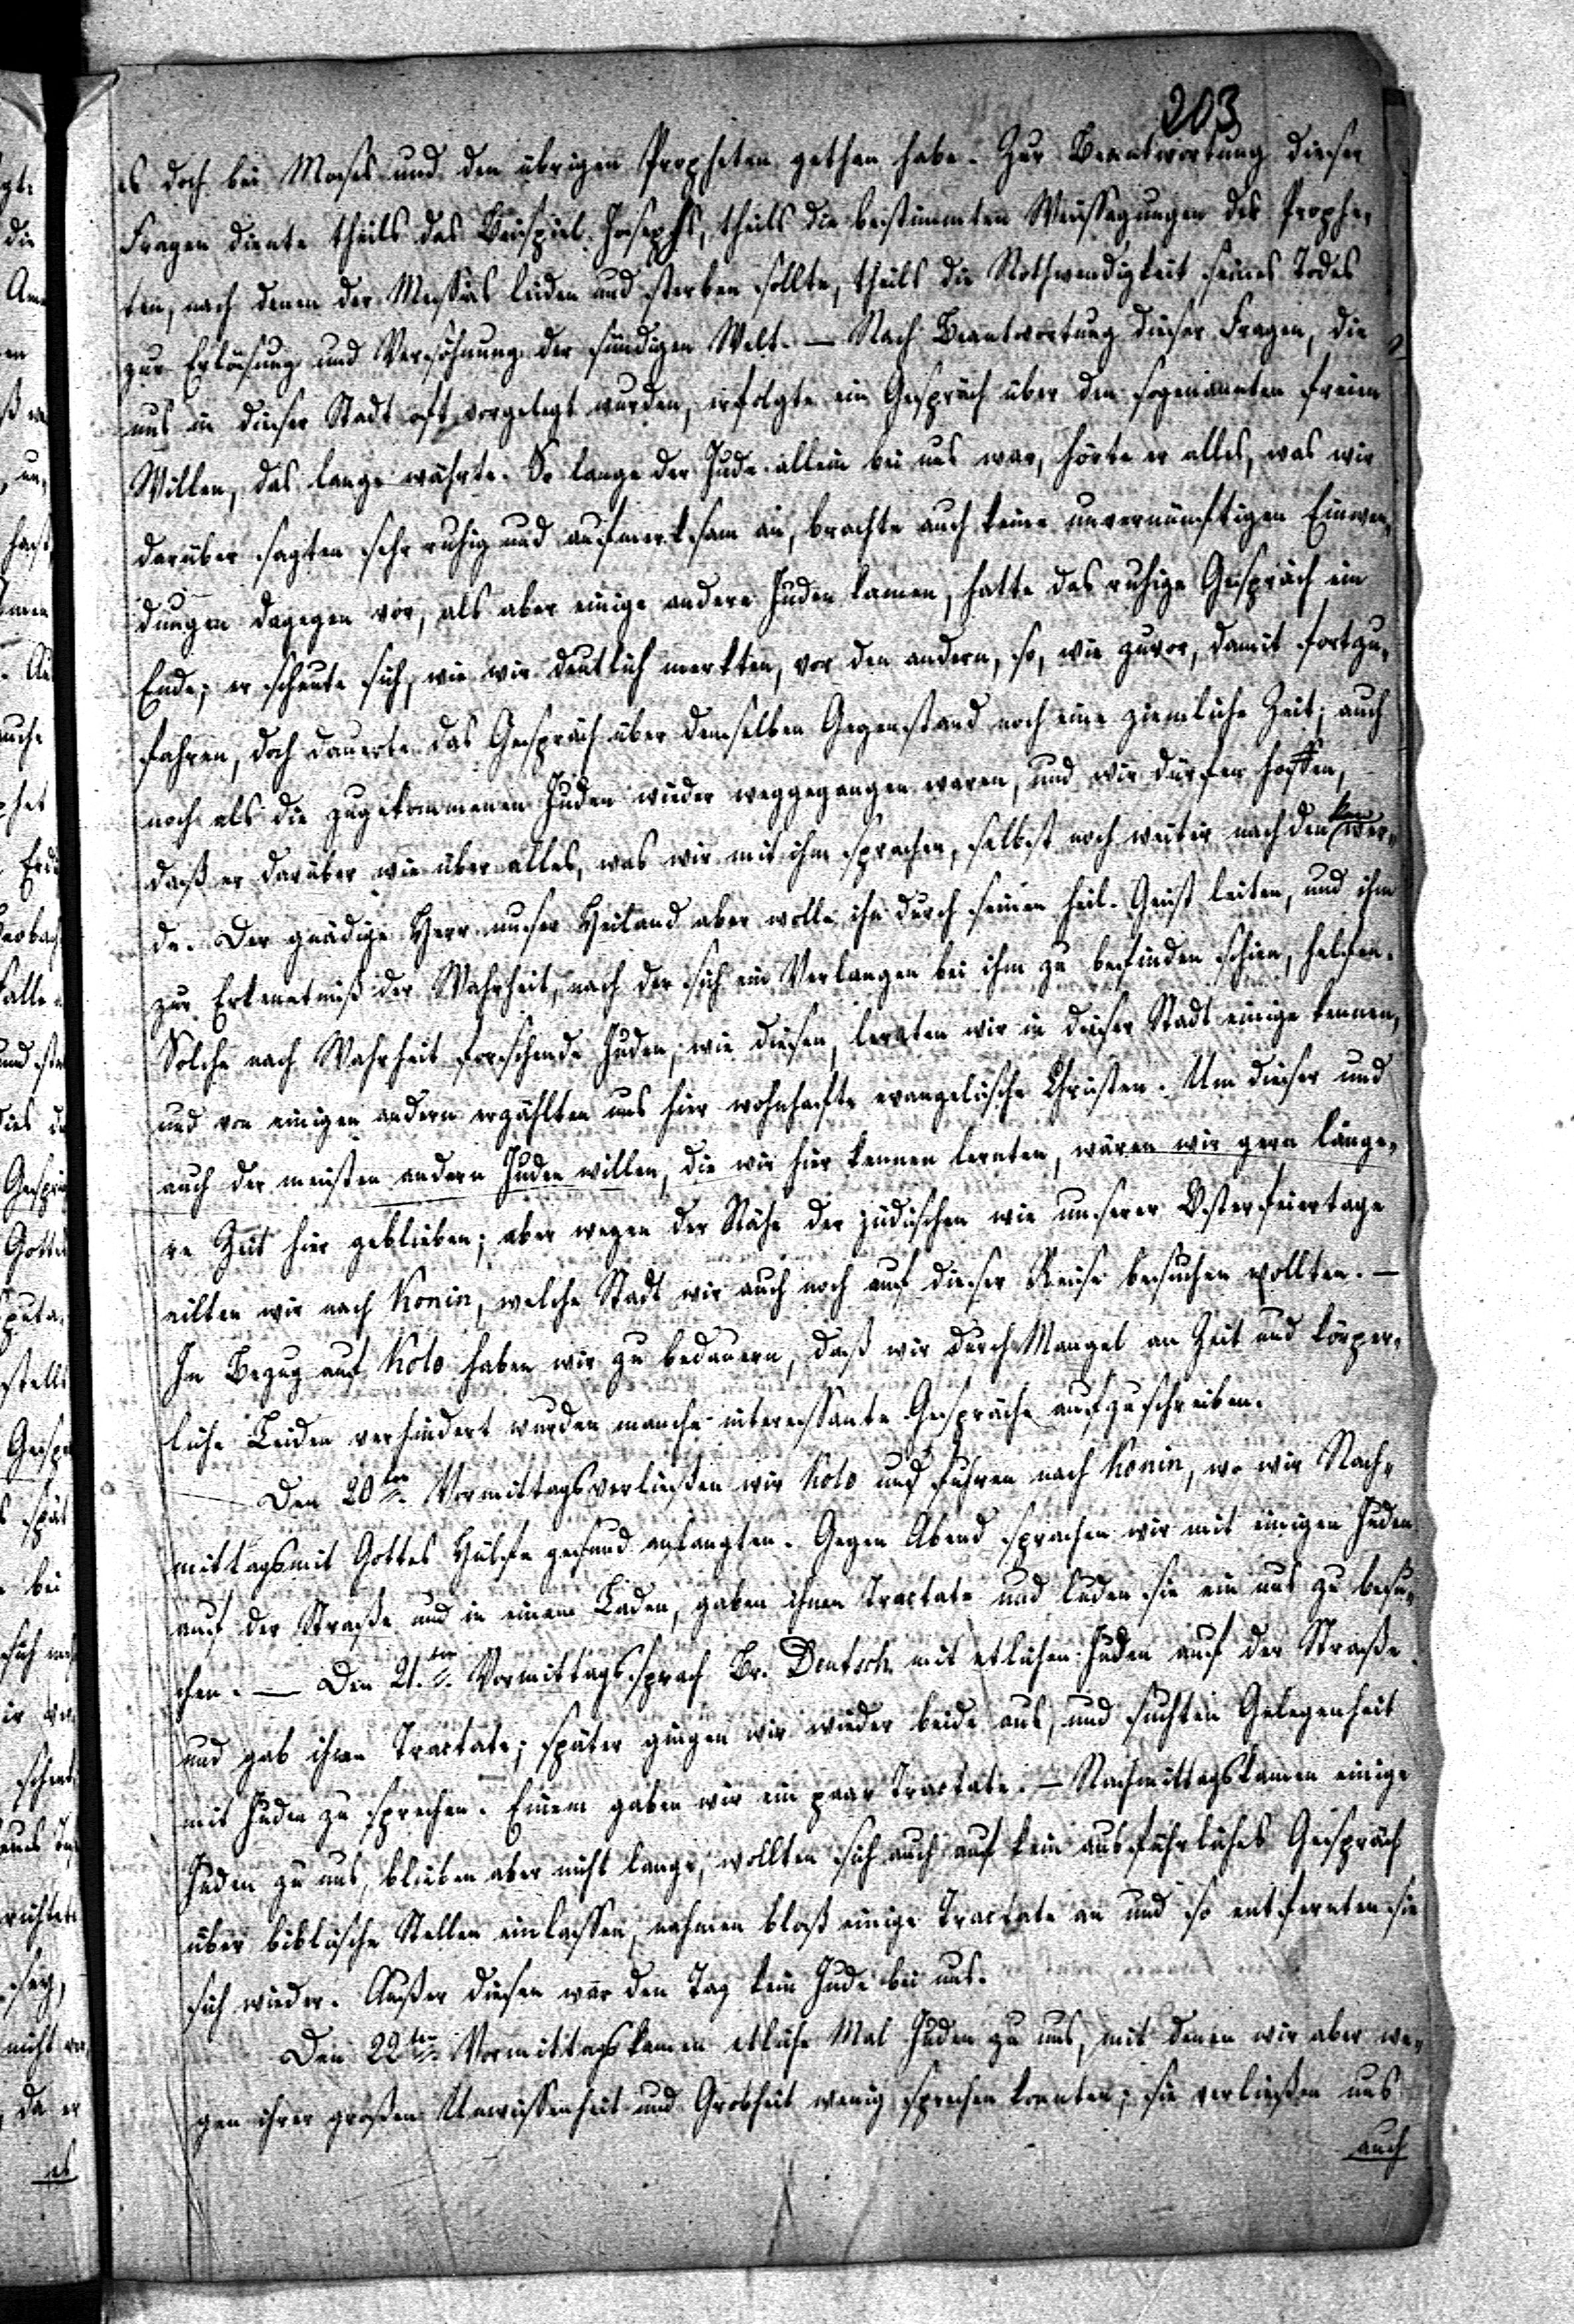 203
es doch bei Moses und den übrigen Propheten gethan habe. Zur Beantwortung dieser
Fragen diente theils das Beispiel Josephs, theils die bestimmten Weissagungen der Prophe-
ten, nach denen der Messias leiden und sterben sollte, theils die Nothwendigkeit seines Todes
zur Erlösung und Versöhnung der sündigen Welt. — Nach Beantwortung dieser Fragen, die
uns in dieser Stadt oft vorgelegt wurden, erfolgte ein Gespräch über den sogenannten freien
Willen, das lange währte. So lange der Jude allein bei uns war, hörte er alles, was wir
darüber sagten sehr ruhig und aufmerksam an, brachte auch keine unvernünftigen Einwen-
dungen dagegen vor, als aber einige andere Juden kamen, hatte das ruhige Gespräch ein
Ende; er scheute sich, wie wir deutlich merkten, vor den andern, so, wie zuvor, damit fortzu-
fahren, doch dauerte das Gespräch über denselben Gegenstand noch eine ziemliche Zeit; auch
noch als die zugekommenen Juden wieder weggegangen waren, und wir dürfen hoffen,
daß er darüber wie über alles, was wir mit ihm sprachen, selbst noch weiter nachdenken wer-
de. Der gnädige Herr unser Heiland aber wolle ihn durch seinen heil. Geist leiten, und ihm
zur Erkenntniß der Wahrheit, nach der sich ein Verlangen bei ihm zu befinden schien, helfen.
Solche nach Wahrheit forschende Juden, wie diesen, lernten wir in dieser Stadt einige kennen,
und von einigen andern erzählten uns hier wohnhafte evangelische Christen. Um dieser und
auch der meisten andern Juden willen, die wir hier kennen lernten, wären wir gern länge-
re Zeit hier geblieben; aber wegen der Nähe der jüdischen wie unserer Osterfeiertage
eilten wir nach Konin, welche Stadt wir auch noch auf dieser Reise besuchen wollten. —
In Bezug auf Kolo haben wir zu bedauern, daß wir durch Mangel an Zeit und körper-
liche Leiden verhindert wurden manche interessante Gespräche aufzuschreiben.
Den 20ten Vormittags verließen wir Kolo und fuhren nach Konin, wo wir Nach-
mittags mit Gottes Hülfe gesund anlangten. Gegen Abend sprachen wir mit einigen Juden
auf der Straße und in einem Laden, gaben ihnen Tractate und luden sie ein uns zu besu-
chen. — Den 21.ten Vormittags sprach Br. Deutsch mit etlichen Juden auf der Straße
und gab ihnen Tractate; später gingen wir wieder beide aus, und suchten Gelegenheit
mit Juden zu sprechen. Einem gaben wir ein paar Tractate. — Nachmittags kamen einige
Juden zu uns, blieben aber nicht lange, wollten sich auch auf kein ausführliches Gespräch
über biblische Stellen einlassen, nahmen bloß einige Tractate an und so entfernten sie
sich wieder. Außer diesen war den Tag kein Jude bei uns.
Den 22ten Vormittags kamen etliche Mal Juden zu uns, mit denen wir aber we-
gen ihrer großen Unwissenheit und Grobheit wenig sprechen konnten; sie verließen uns
auch